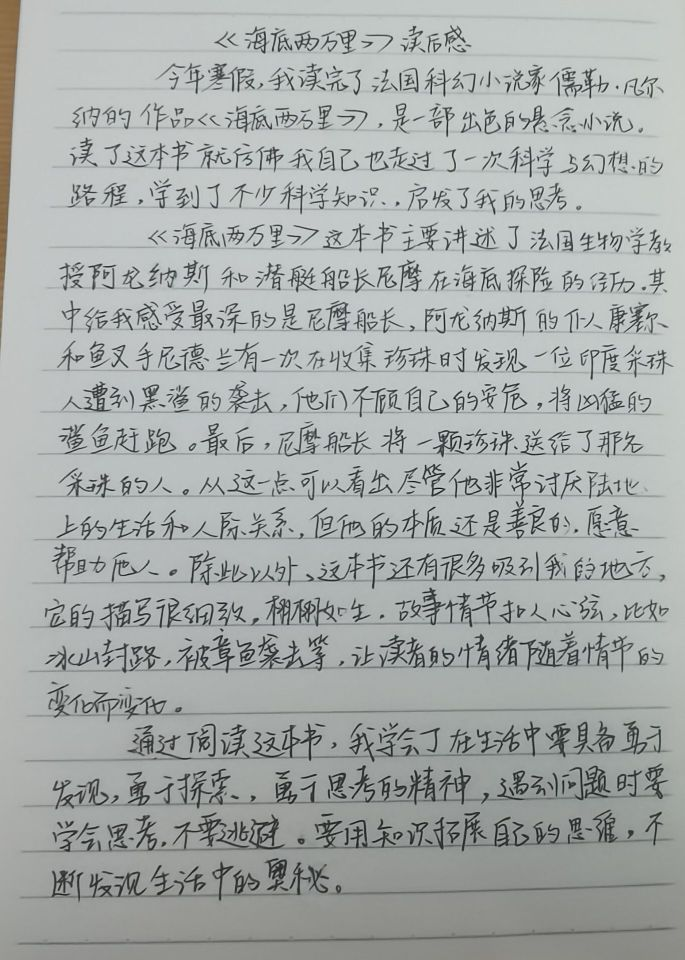 《海底两万里》读后感
今年寒假,我读完了法国科幻小说家儒勒·凡尔
纳的作品《海底两万里》,是一部出色的悬念小说。
读了这本书就仿佛我自己也走过了一次科学与幻想的
路程,学到了不少科学知识,启发了我的思考。
《海底两万里》这本书主要讲述了法国生物学教
授阿龙纳斯和潜艇船长尼摩在海底探险的经历.其
中给我感受最深的是尼摩船长,阿龙纳斯的仆人康塞尔
和鱼叉手尼德兰有一次在收集珍珠时发现一位印度采珠
人遭到黑鲨的袭击,他们不顾自己的安危,将凶猛的
鲨鱼赶跑。最后,尼摩船长将一颗珍珠送给了那名
采珠的人。从这一点可以看出尽管他非常讨厌陆地
上的生活和人际关系,但他的本质还是善良的,愿意
帮助他人。除此以外、这本书还有很多吸引我的地方,
它的描写很细致,栩栩如生.故事情节扣人心弦,比如
冰山封路,被章鱼袭击等,让读者的情绪随着情节的
变化而变化。
通过阅读这本书,我学会了在生活中要具备勇于
发现,勇于探索,勇于思考的精神,遇到问题时要
学会思考,不要逃避。要用知识拓展自己的思维,不
断发现生活中的奥秘。